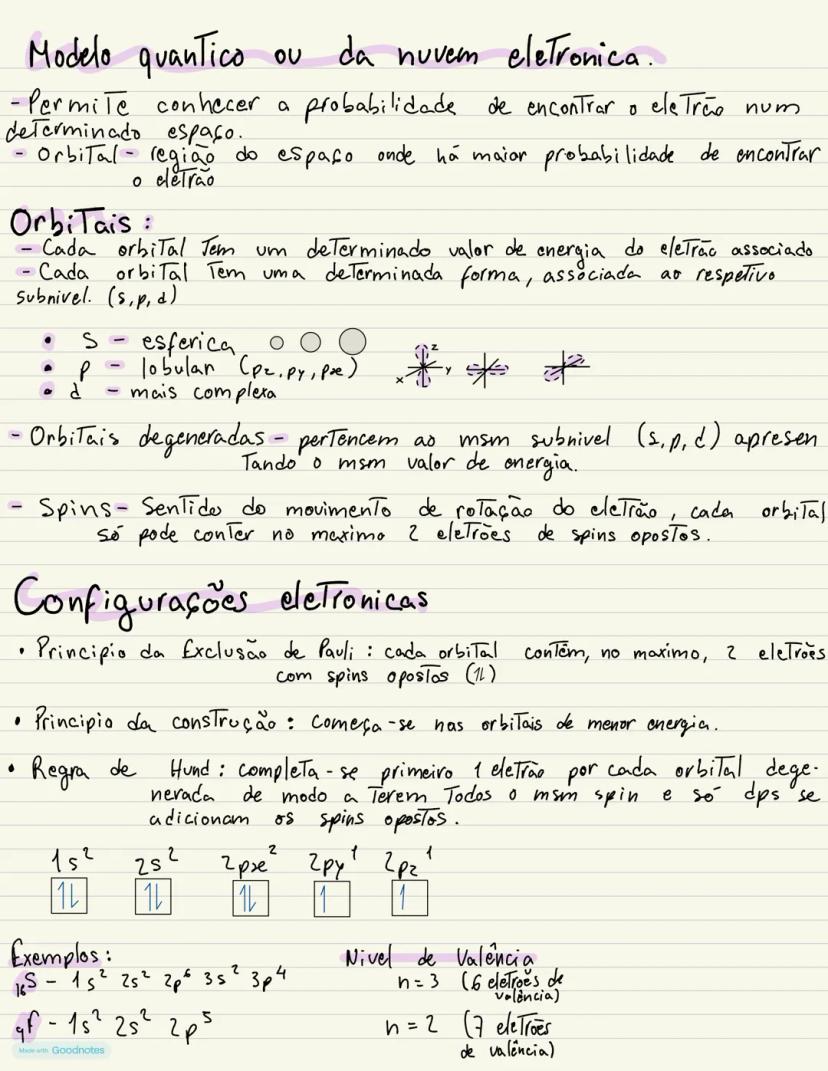 Modelo quantico ou da nuvem eletronica.
- Permite conhecer a probabilidade de encontrar o eletrão num
determinado espaço.
- Orbital - região do espaço onde há maior probabilidade de encontrar
o eletrão
Orbitais :
- Cada orbital tem um determinado valor de energia do eletrão associado
- Cada orbital tem uma determinada forma, associada ao respetivo
subnivel. (s, p, d)
• s - esferica
• p - lobular (pz, py, px)
z
x y
• d - mais complexa
- Orbitais degeneradas - pertencem ao msm subnivel (s, p, d) apresen
tando o msm valor de energia.
- Spins - Sentido do movimento de rotação do eletrão, cada orbital
só pode conter no maximo 2 eletrões de spins opostos.
Configurações eletronicas
• Principio da Exclusão de Pauli : cada orbital contêm, no maximo, 2 eletrões
com spins opostos (⥮)
• Principio da construção : começa-se nas orbitais de menor energia.
• Regra de Hund : completa-se primeiro 1 eletrão por cada orbital dege-
nerada de modo a terem todos o msm spin e só dps se
adicionam os spins opostos.
1s² 2s² 2px² 2py¹ 2pz¹
⥮ ⥮ ⥮ ↿ ↿
Exemplos : Nivel de Valência
₁₆S - 1s² 2s² 2p⁶ 3s² 3p⁴ n = 3 (6 eletrões de
valência)
₉F - 1s² 2s² 2p⁵ n = 2 (7 eletrões
de valência)
Made with Goodnotes